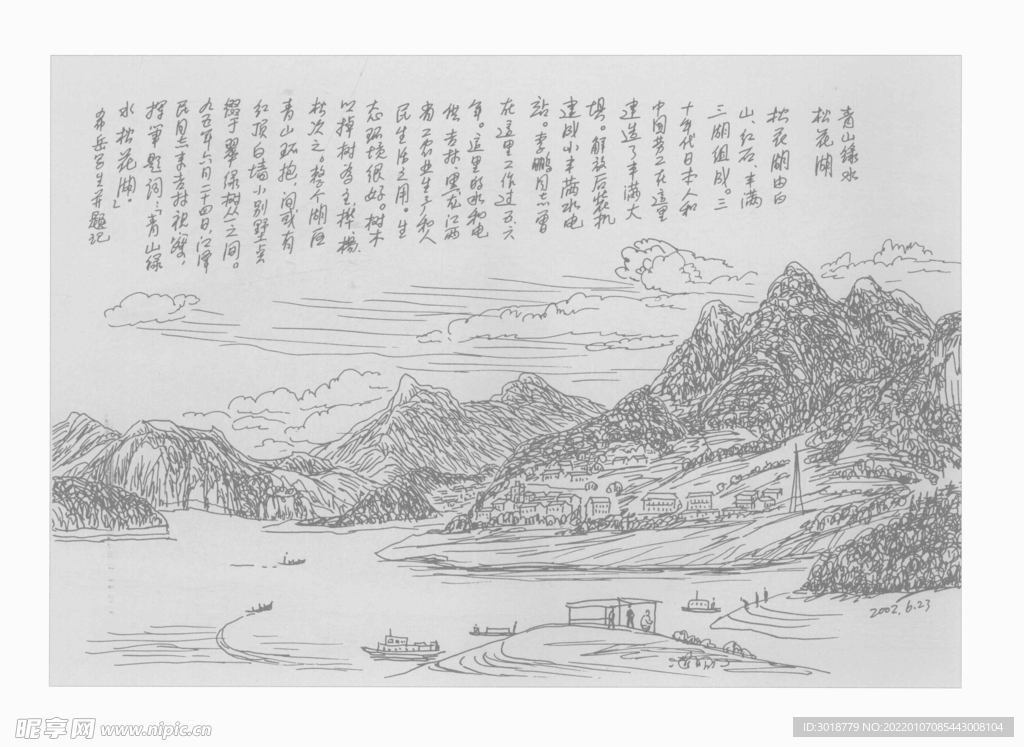 青山绿水
松花湖
松花湖由白
山、红石、丰满
三湖组成。三
十年代日本人和
中国劳工在這里
建造了丰满大
埧。解放后装机
建成小丰满水电
站。李鹏同志曾
在這里工作过五、六
年。這里的水和电
供吉林、黑龙江两
省工农业生产和人
民生活之用。生
态环境很好。树木
以樟树为主，
松次之。整个湖面
青山环抱，间或有
红顶白墙小别墅点
缀于翠绿树丛之间。
九五年六月二十四日，江泽
民同志来吉林视察，
挥笔题词：「青山绿
水松花湖」
写生并题记
2002.6.23
昵享网 www.nipic.cn
ID:3018779 NO:20220107085443008104